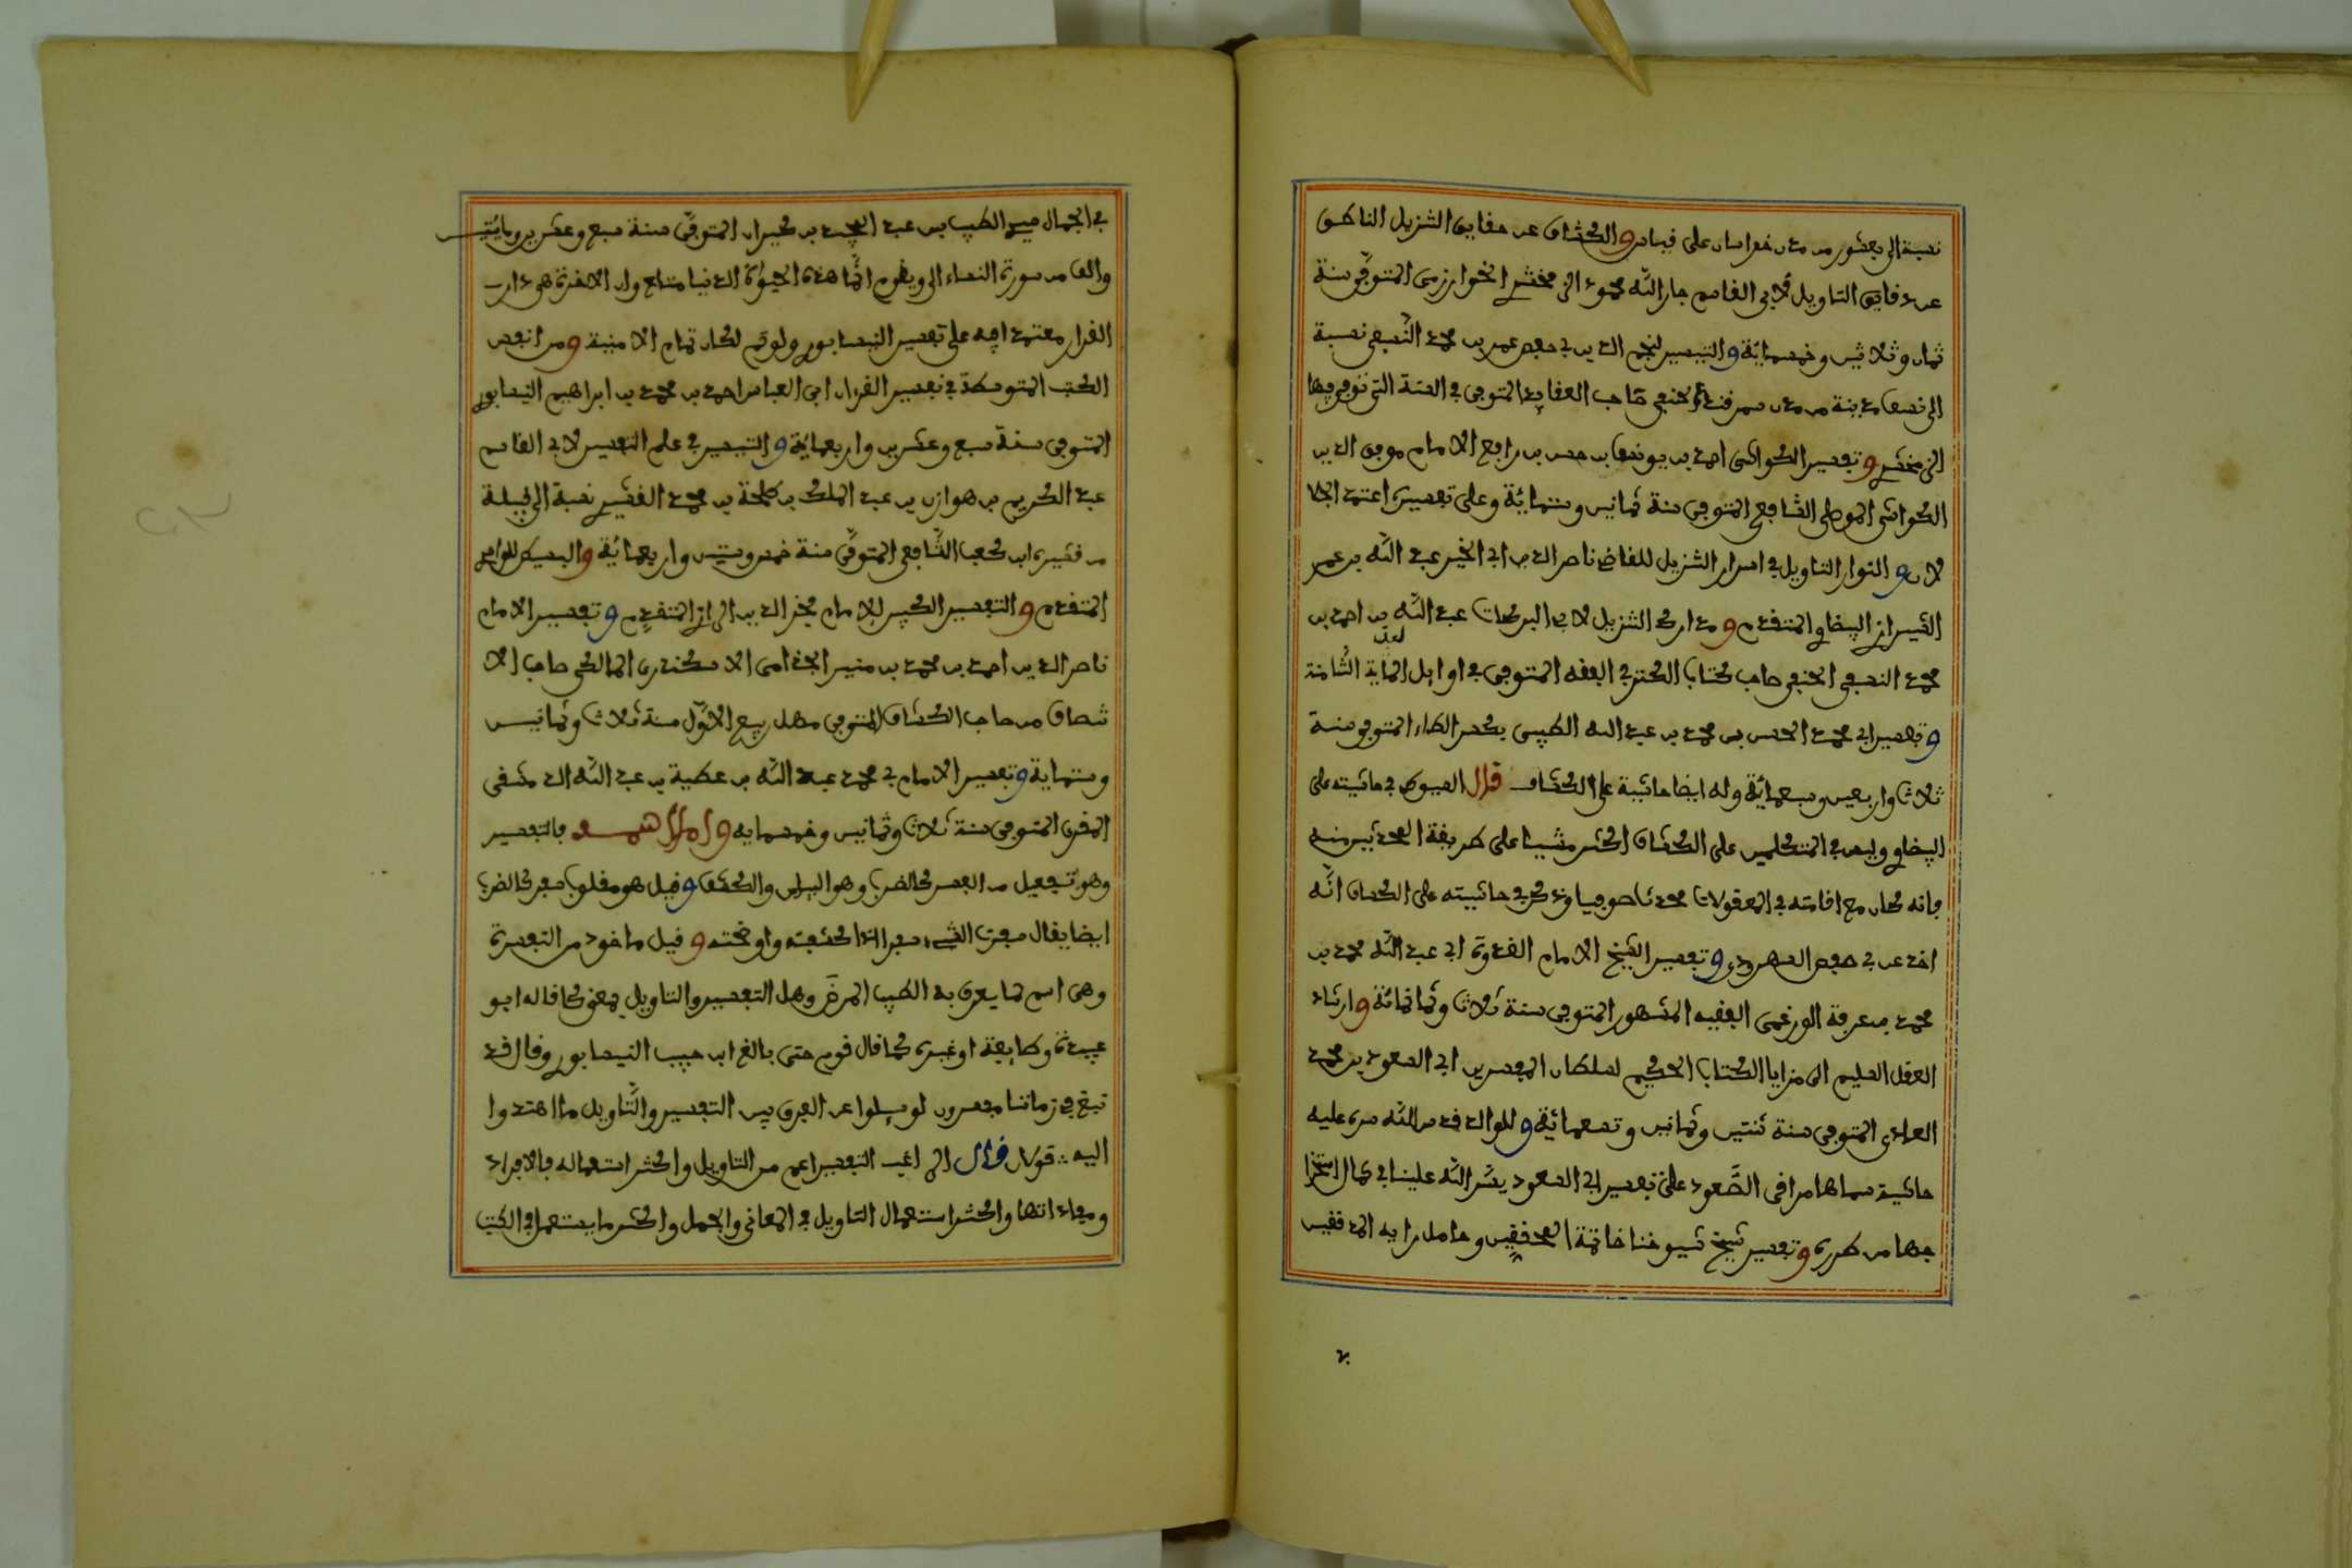 نسبة الى بغشور من مدن خراسان على غير قياس والكشاف عن حقايق التنزيل الناطق
عن دقايق التاويل لابي القاسم جار الله محمود الزمخشري الخوارزمي المتوفى سنة
ثمان وثلاثين وخمسمائة والتيسير لنجم الدين ابي حفص عمر بن محمد النسفي نسبة
الى نسف مدينة من مدن سمرقند الحنفي صاحب العقايد المتوفى في السنة التي توفي فيها
الزمخشري وتفسير الكواشي احمد بن يوسف بن حسن بن رافع الامام موفق الدين
الكواشي الموصلي الشافعي المتوفى سنة ثمانين وستمائة وعلى تفسيره اعتمد الجلا
لان وانوار التاويل في اسرار التنزيل للقاضي ناصر الدين ابي الخير عبد الله بن عمر
الشيرازي البيضاوي المتقدم ومدارك التنزيل لابي البركات عبد الله بن احمد بن
محمد النسفي الحنفي صاحب كتاب الكنز في الفقه المتوفى في اوايل الماية الثامنة
وتفسير ابي محمد الحسن بن محمد بن عبد الله الطيبي بكسر الطاء المتوفى سنة
ثلاث واربعين وسبعمائة وله ايضا حاشية على الكشاف قال السيوطي في حاشيته على
البيضاوي وليس في المتكلمين على الكشاف اكثر مشيا على طريقة المحدثين منه
فانه كان مع امامته في المعقولات محدثا صوفيا وذكر في حاشيته على الكشاف انه
اخذ عن ابي حفص السهروردي وتفسير الشيخ الامام القدوة ابي عبد الله محمد بن
محمد بن عرفة الورغمي الفقيه المشهور المتوفى سنة ثلاث وثمانمائة وارشاد
العقل السليم الى مزايا الكتاب الحكيم لسلطان المفسرين ابي السعود بن محمد
العمادي المتوفى سنة ثنتين وثمانين وتسعمائة وللوالد قدس الله سره عليه
حاشية سماها مراقي الصعود على تفسير ابي السعود يسر الله علينا في كمال استخرا
جها من طرره وتفسير شيخ شيوخنا خاتمة المحققين وحامل راية المدققين
في الجمال سيدي الطيب بن عبد المجيد بن كيران المتوفى سنة سبع وعشرين ومايتين
والف من سورة النساء الى ويقوم انما هذه الحيوة الدنيا متاع وان الاخرة هي دار
القرار معتمدا فيه على تفسير النيسابوري ولو تم لكان تمام الامنية ومن انفس
الكتب المتوسطة في تفسير القرءان ابي العباس احمد بن محمد بن ابراهيم النيسابوري
المتوفى سنة سبع وعشرين واربعماية والتيسير في علم التفسير لابي القاسم
عبد الكريم بن هوازن بن عبد الملك بن طلحة بن محمد القشيري نسبة الى قبيلة
من قشير ابن كعب الشافعي المتوفى سنة خمس وستين واربعمائة والبسيط للواحدي
المتقدم والتفسير الكبير للامام فخر الدين الرازي المتقدم وتفسير الامام
ناصر الدين احمد بن محمد بن منير الجذامي الاسكندري المالكي صاحب الا
نتصاف من صاحب الكشاف المتوفى مهل ربيع الاول سنة ثلاث وثمانين
وستماية وتفسير الامام ابي محمد عبد الله بن عطية بن عبد الله الدمشقي
المقرئ المتوفى سنة ثلاث وثمانين وخمسمايه و بالتفسير
وهو تفعيل من الفسر كالضرب وهو البيان والكشف وقيل هو مقلوب سفر كالضرب
ايضا يقال سفرت الشيء سفرا اذا كشفته واوضحته وقيل ماخوذ من التفسرة
وهي اسم لما يعرف به الطبيب المرض وهل التفسير والتاويل بمعنى كما قاله ابو
عبيدة وطايفة او غيره كما قال قوم حتى بالغ ابن حبيب النيسابوري وقال قد
نبغ في زماننا مفسرون لو سيلوا عن الفرق بين التفسير والتاويل ما اهتدوا
اليه قولان قال الراغب التفسير اعم من التاويل واكثر استعماله في الافراد
ومفرداتها واكثر استعمال التاويل في المعاني والجمل واكثر ما يستعمل في الكتب